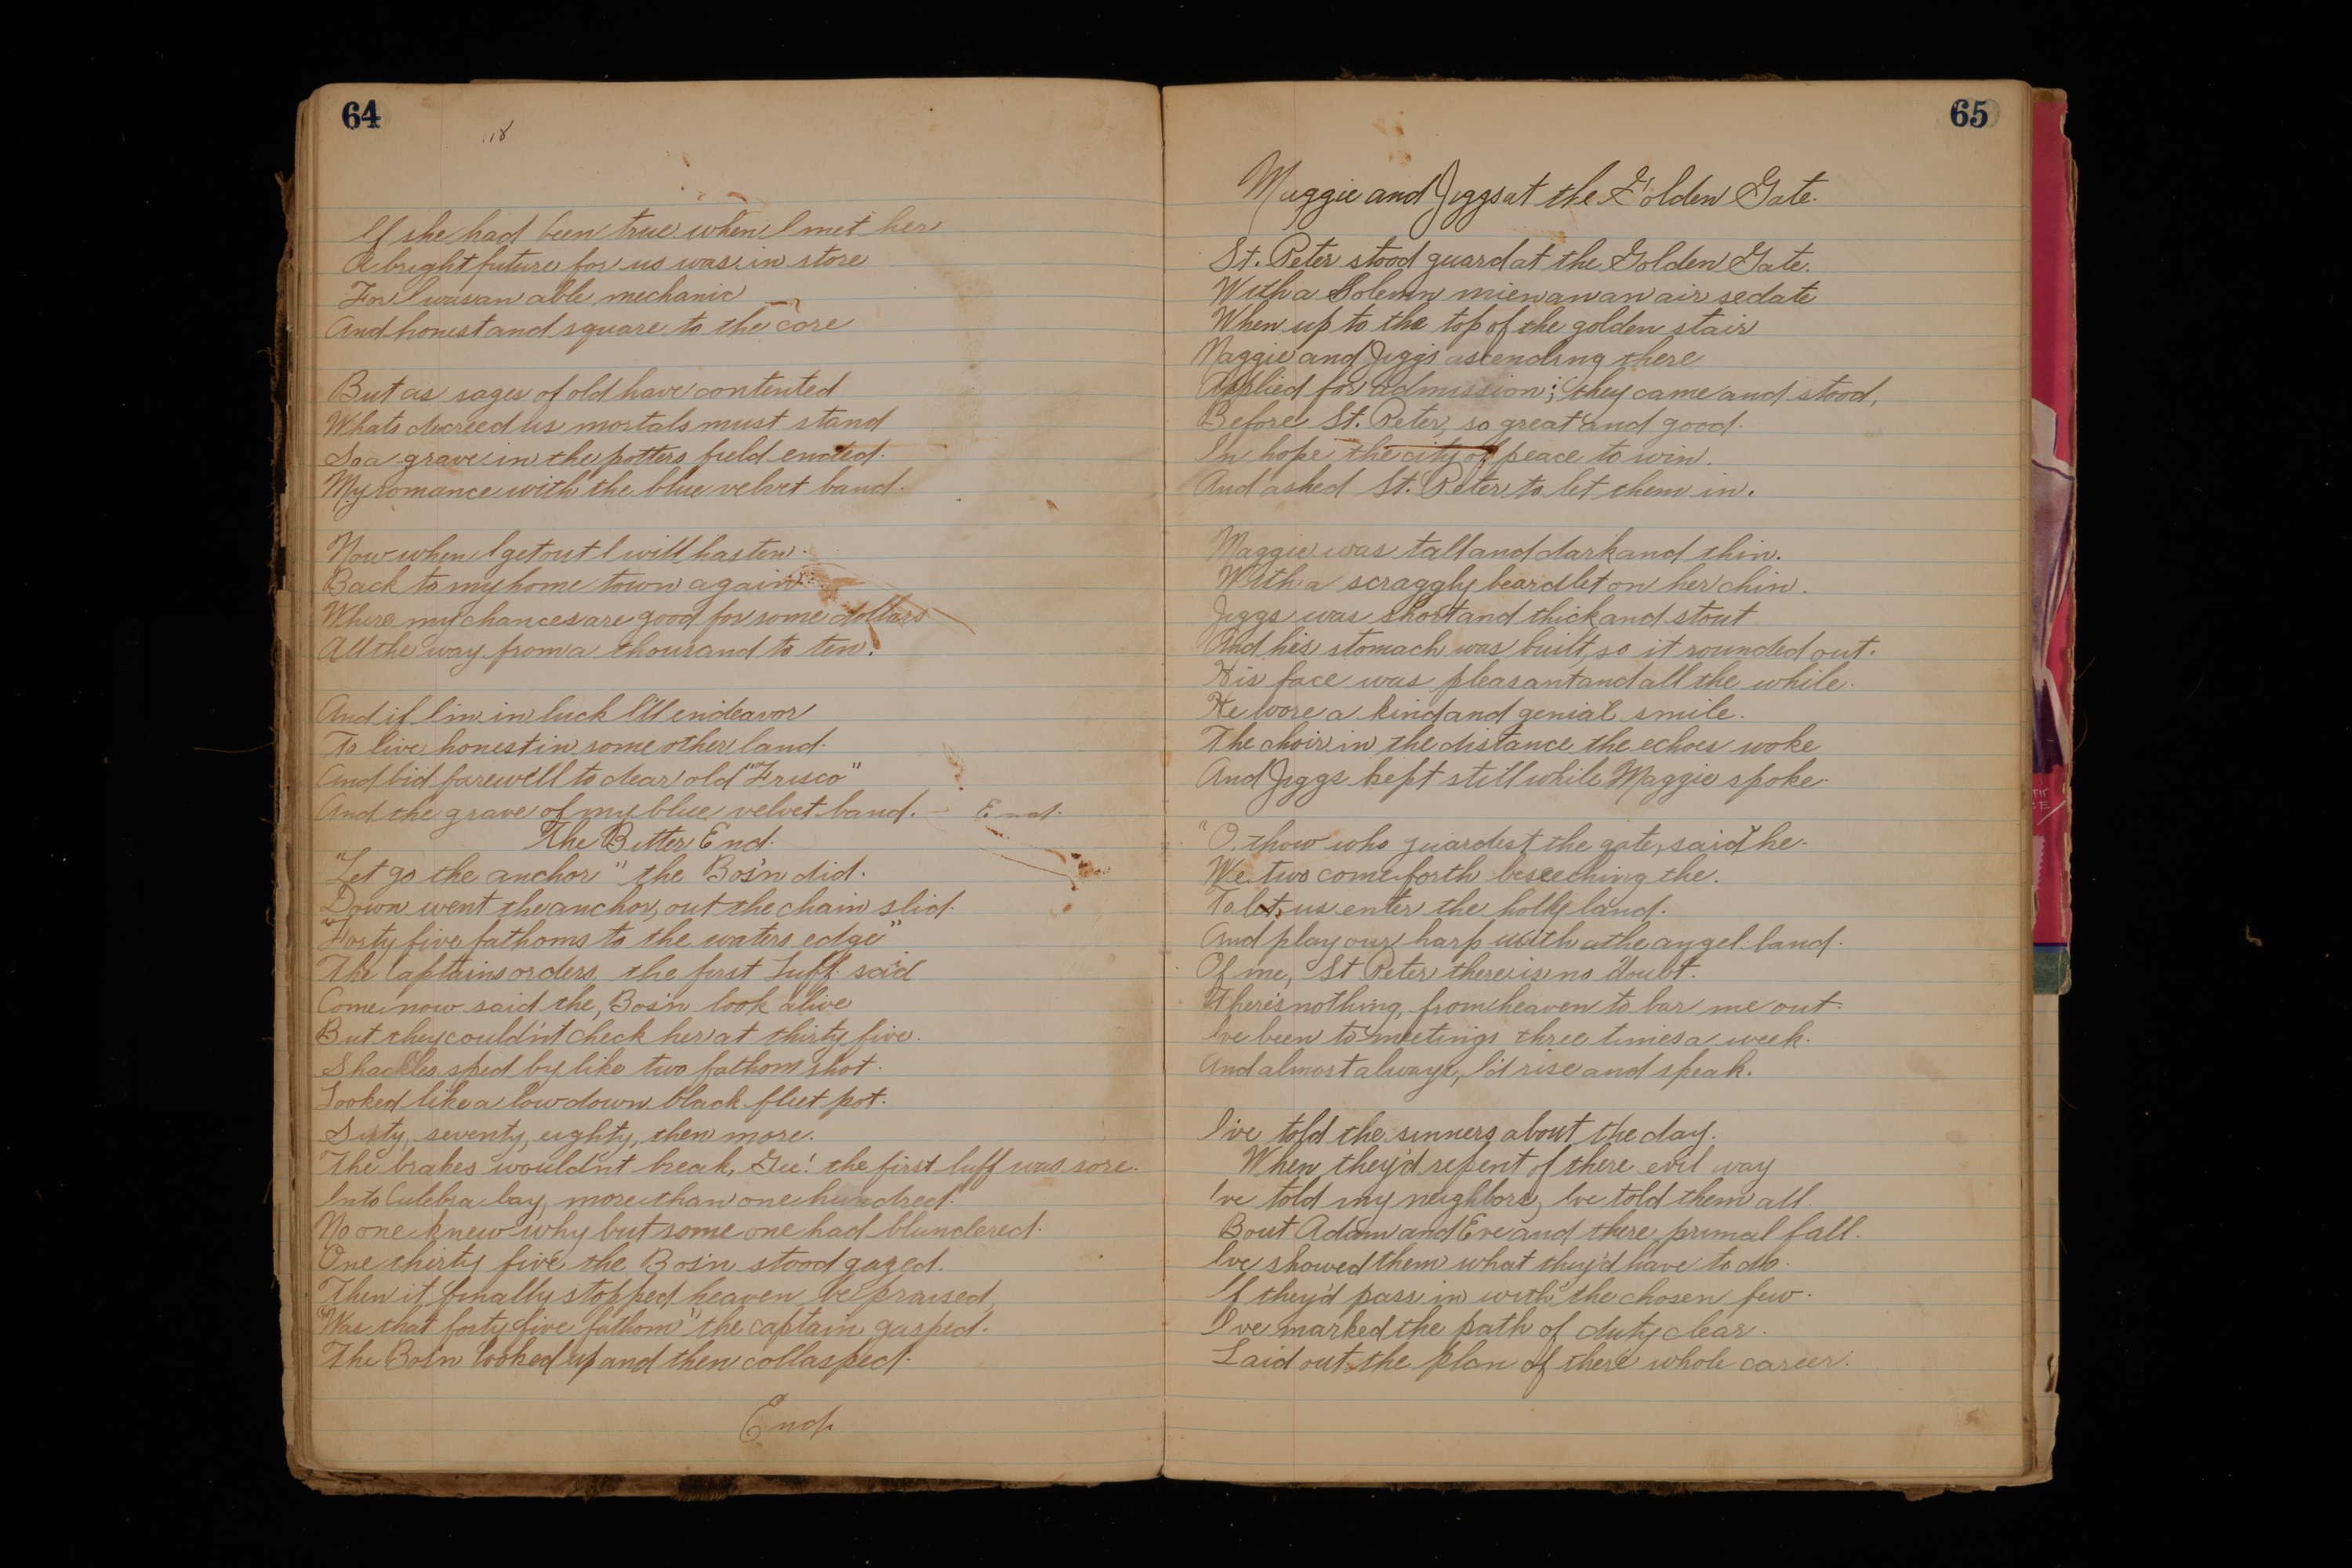 64
If she had been true when I met her
A bright future for us was in store
For I was an able mechanic
And honest and square to the core
But as sages of old have contented
Whats decreed us mortals must stand
So a grave in the potters field ended.
My romance with the blue velvet band.
Now when I get out I will hasten.
Back to my home town again.
Where my chances are good for some dollars
All the way from a thousand to ten.
And if I'm in luck I'll endeavor
To live honest in some other land.
And bid farewell to dear old "Frisco"
And the grave of my blue velvet band. - End.
The Bitter End.
"Let go the anchor" the Bos'n did.
Down went the anchor, out the chain slid.
"Forty five fathoms to the waters edge"
The Captains orders, the first Luff. said
Come now said the, Bos'n look alive
But they couldn't check her at thirty five.
Shackles sped by like two fathom shot.
Looked like a low down black fleet pot.
Sixty, seventy, eighty, then more.
The brakes would'nt break, Gee! the first luff was sore.
Into Culebra bay, more than one hundred.
No one knew why but some one had blundered.
One thirty five the Bos'n stood gazed.
Then it finally stopped heaven be praised,
"Was that forty five fathom" the captain gasped.
The Bos'n looked up and then collasped.
End.
65
Maggie and Jiggs at the Golden Gate.
St. Peter stood guard at the Golden Gate.
With a Solemn mien an an air sedate
When up to the top of the golden stair
Maggie and Jiggs ascending there
Applied for admission; they came and stood,
Before St. Peter, so great and good.
In hope the city of peace to win.
And asked St. Peter to let them in.
Maggie was tall and dark and thin.
With a scraggly beardlet on her chin.
Jiggs was short and thick and stout
And his stomach was built, so it rounded out.
His face was pleasant and all the while.
He wore a kind and genial smile.
The choir in the distance the echoes woke
And Jiggs kept still while Maggie spoke.
"O, thow who guardest the gate, said he.
We two come forth beseeching the.
To let us enter the holly land.
And play our harp with the angel band.
Of me, St Peter there is no doubt.
There's nothing, from heaven to bar me out.
I've been to meetings three times a week.
And almost always, I'd rise and speak.
I've told the sinners about the day.
When they'd repent of there evil way
I've told my neighbors, I've told them all.
Bout Adam and Eve and there primal fall.
I've showed them what they'd have to do.
If they'd pass in with the chosen few.
I've marked the path of duty clear.
Laid out the plan of there whole career.